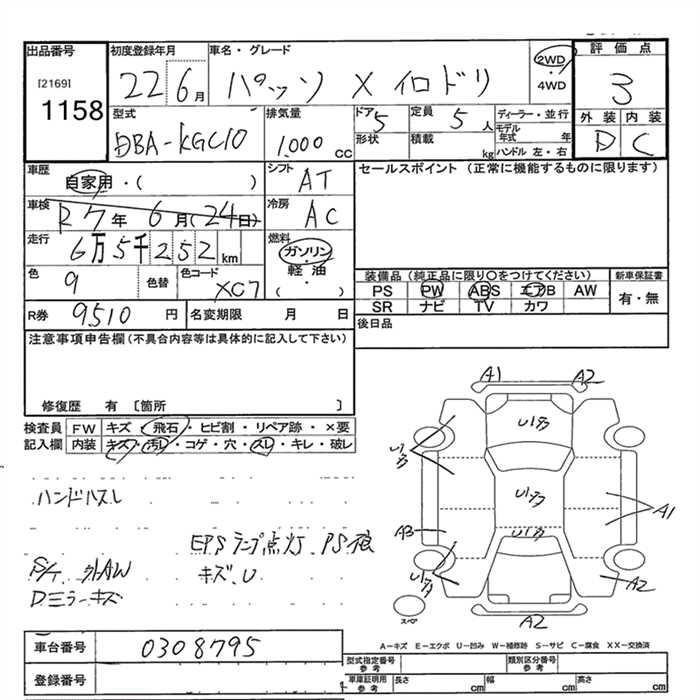 出品番号
[2169]
1158
初度登録年月
22 6月
車名・グレード
パッソ X イロドリ
2WD
・
4WD
評価点
3
外装 内装
D C
型式
DBA-KGC10
排気量
1,000 cc
ドア 5
形状
定員 5 人
積載 kg
ディーラー・並行
モデル年式 年
ハンドル 左・右
車歴
自家用・( )
車検
R7年 6月(24日)
走行
6万5千252km
色
9
色替
色コード
XC7
シフト AT
冷房 AC
燃料
ガソリン
・
軽油
( )
セールスポイント (正常に機能するものに限ります)
装備品 (純正品に限り○をつけてください)
PS PW ABS エアB AW
SR ナビ TV カワ
新車保証書
有・無
R券 9510 円
名変期限 月 日
後日品
注意事項申告欄(不具合内容等は具体的に記入して下さい)
修復歴 有 〔箇所 〕
検査員記入欄
FW キズ・飛石・ヒビ割・リペア跡・×要
内装 キズ・汚レ・コゲ・穴・スレ・キレ・破レ
ハンドルスレ
EPSランプ点灯
キズ、U
外AW
Dミラーキズ
A1 A2
U1キズ
U1キズ
U1キズ
U1キズ
A3
U1キズ
A1
A2
A2
スペア
A－キズ E－エクボ U－凹み W－補修跡 S－サビ C－腐食 XX－交換済
車台番号 0308795
登録番号
型式指定番号 参考
類別区分番号 参考
車庫証明用 参考
長さ cm
幅 cm
高さ cm